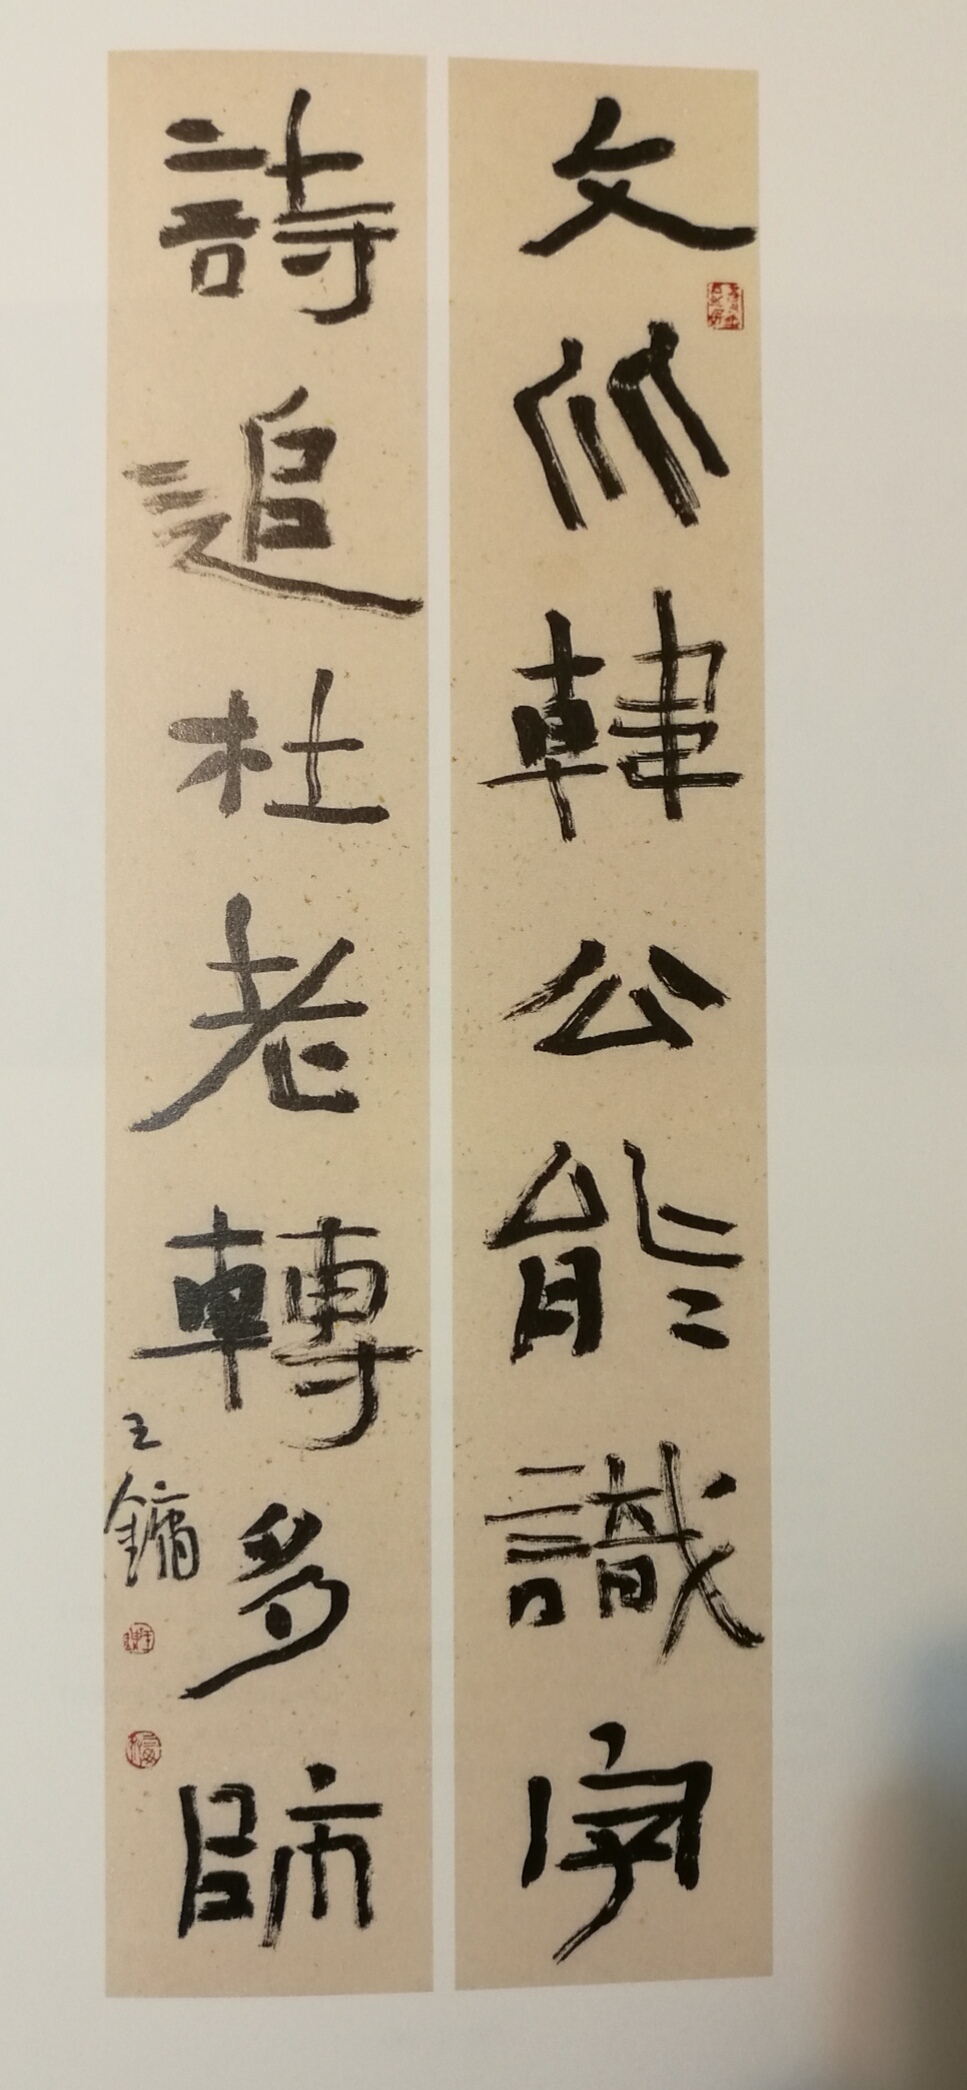 文從韓公能識字
詩追杜老轉多師
王鏞